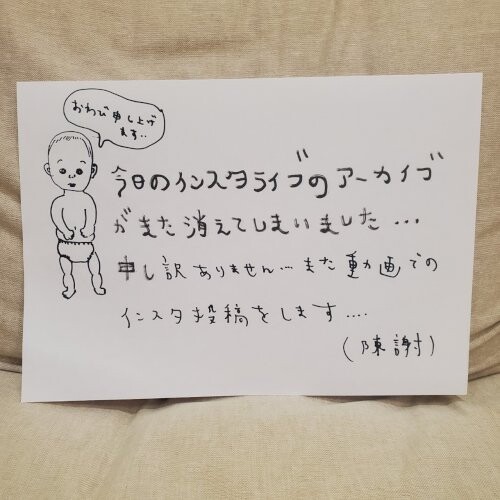 おわび申し上げ
ます..
今日のインスタライブのアーカイブ
がまた消えてしまいました...
申し訳ありません...また動画での
インスタ投稿をします....
(陳謝)